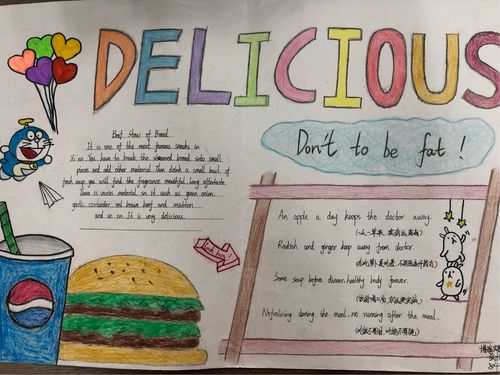 DELICIOUS
Beef Stew of Bread
It is one of the most famous snacks in
Xi an. You have to break the steamed bread into small
pieces and add other material. Then drink a small bowl of
fresh soup, you will find the fragrance mouthful, long aftertaste.
There is varies material in it such as green onion.
garlic. coriander red brown beef and mutton
and so on. It is very delicious.
Don't to be fat!
An apple a day keeps the doctor away.
(一天一苹果, 疾病远离我)
Radish and ginger keep away from doctor.
Some soup before dinner. healthy body forever.
during the meal. no running after the meal.